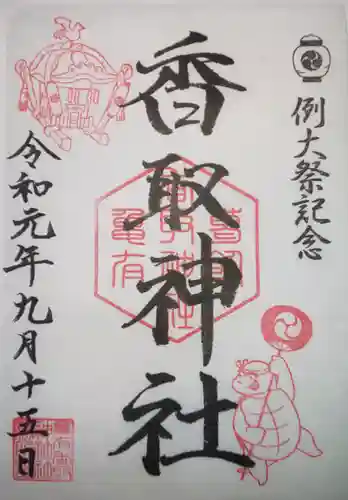 例大祭記念
香取神社
令和元年九月十五日
亀有
香取神社